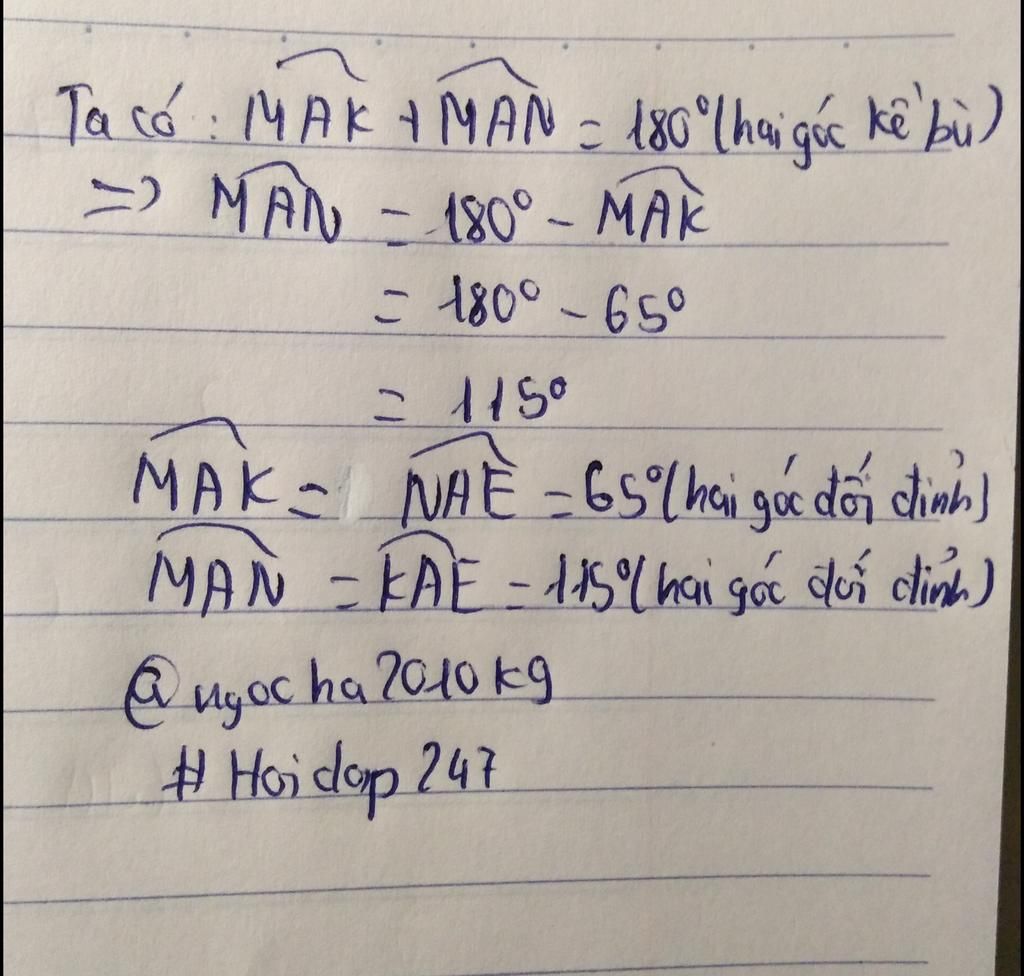 Ta có: MAK + MAN = 180° (hai góc kề bù)
=> MAN = 180° - MAK
= 180° - 65°
= 115°
MAK = NAE = 65° (hai góc đối đỉnh)
MAN = KAE = 115° (hai góc đối đỉnh)
@ngocha2010kg
#Hoidap247